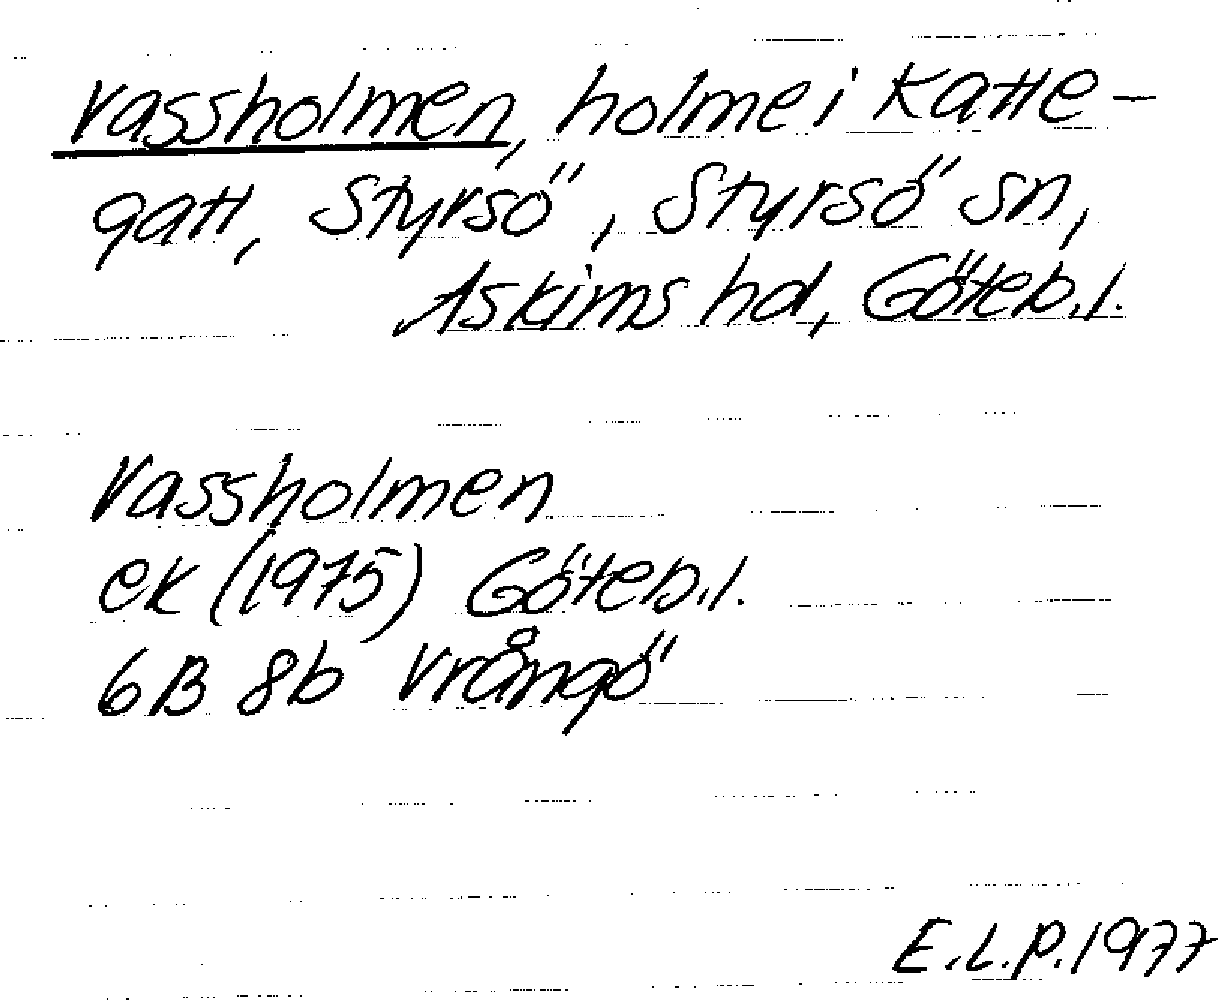 Vassholmen, holme i Katte-
gatt, Styrsö, Styrsö sn,
Askims hd, Göteb.l.
Vassholmen
ek (1975) Göteb.l.
6B 8b Vrångö
E.L.P. 1977